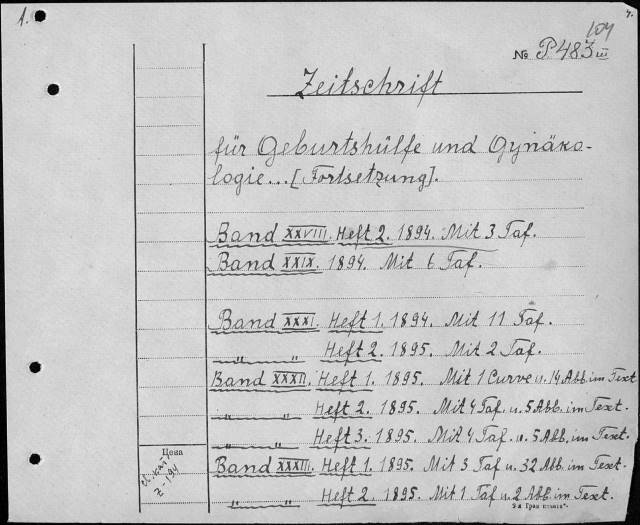 1.
104
№ P483 III
Zeitschrift
für Geburtshülfe und Gynäko-
logie...[Fortsetzung].
Band XXVIII. Heft 2. 1894. Mit 3 Taf.
Band XXIX. 1894. Mit 6 Taf.
Band XXXI. Heft 1. 1894. Mit 11 Taf.
„ „ Heft 2. 1895. Mit 2 Taf.
Band XXXII. Heft 1. 1895. Mit 1 Curve u. 14 Abb. im Text
„ „ Heft 2. 1895. Mit 4 Taf. u. 5 Abb. im Text.
„ „ Heft 3. 1895. Mit 4 Taf. u. 5 Abb. im Text.
Цена
Z-194
Band XXXIII. Heft 1. 1895. Mit 3 Taf u. 32 Abb. im Text.
„ „ Heft 2. 1895. Mit 1 Taf u 2 Abb. im Text.